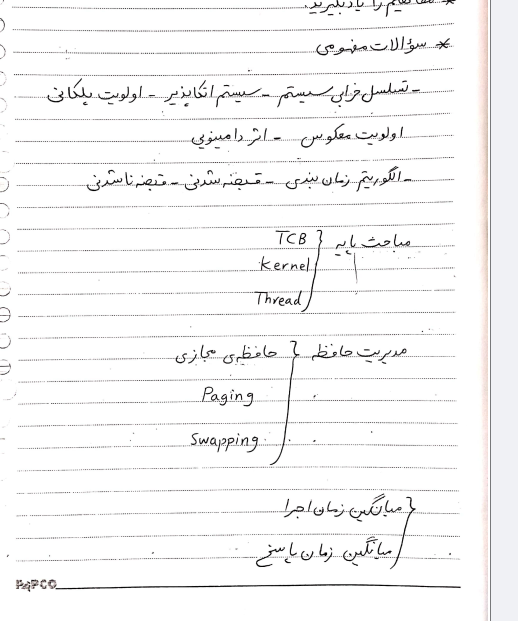 * مفاهیم را یاد بگیرید.
* سؤالات مفهومی
- تسلسل خرابی سیستم - سیستم اتکاپذیر - اولویت پلکانی
اولویت معکوس - اثر دامینویی
- الگوریتم زمان بندی - قبضه شدنی - قبضه ناشدنی
مباحث پایه } TCB
Kernel
Thread
مدیریت حافظه } حافظه‌ی مجازی
Paging
Swapping
} میانگین زمان اجرا
میانگین زمان پاسخ
PAPCO